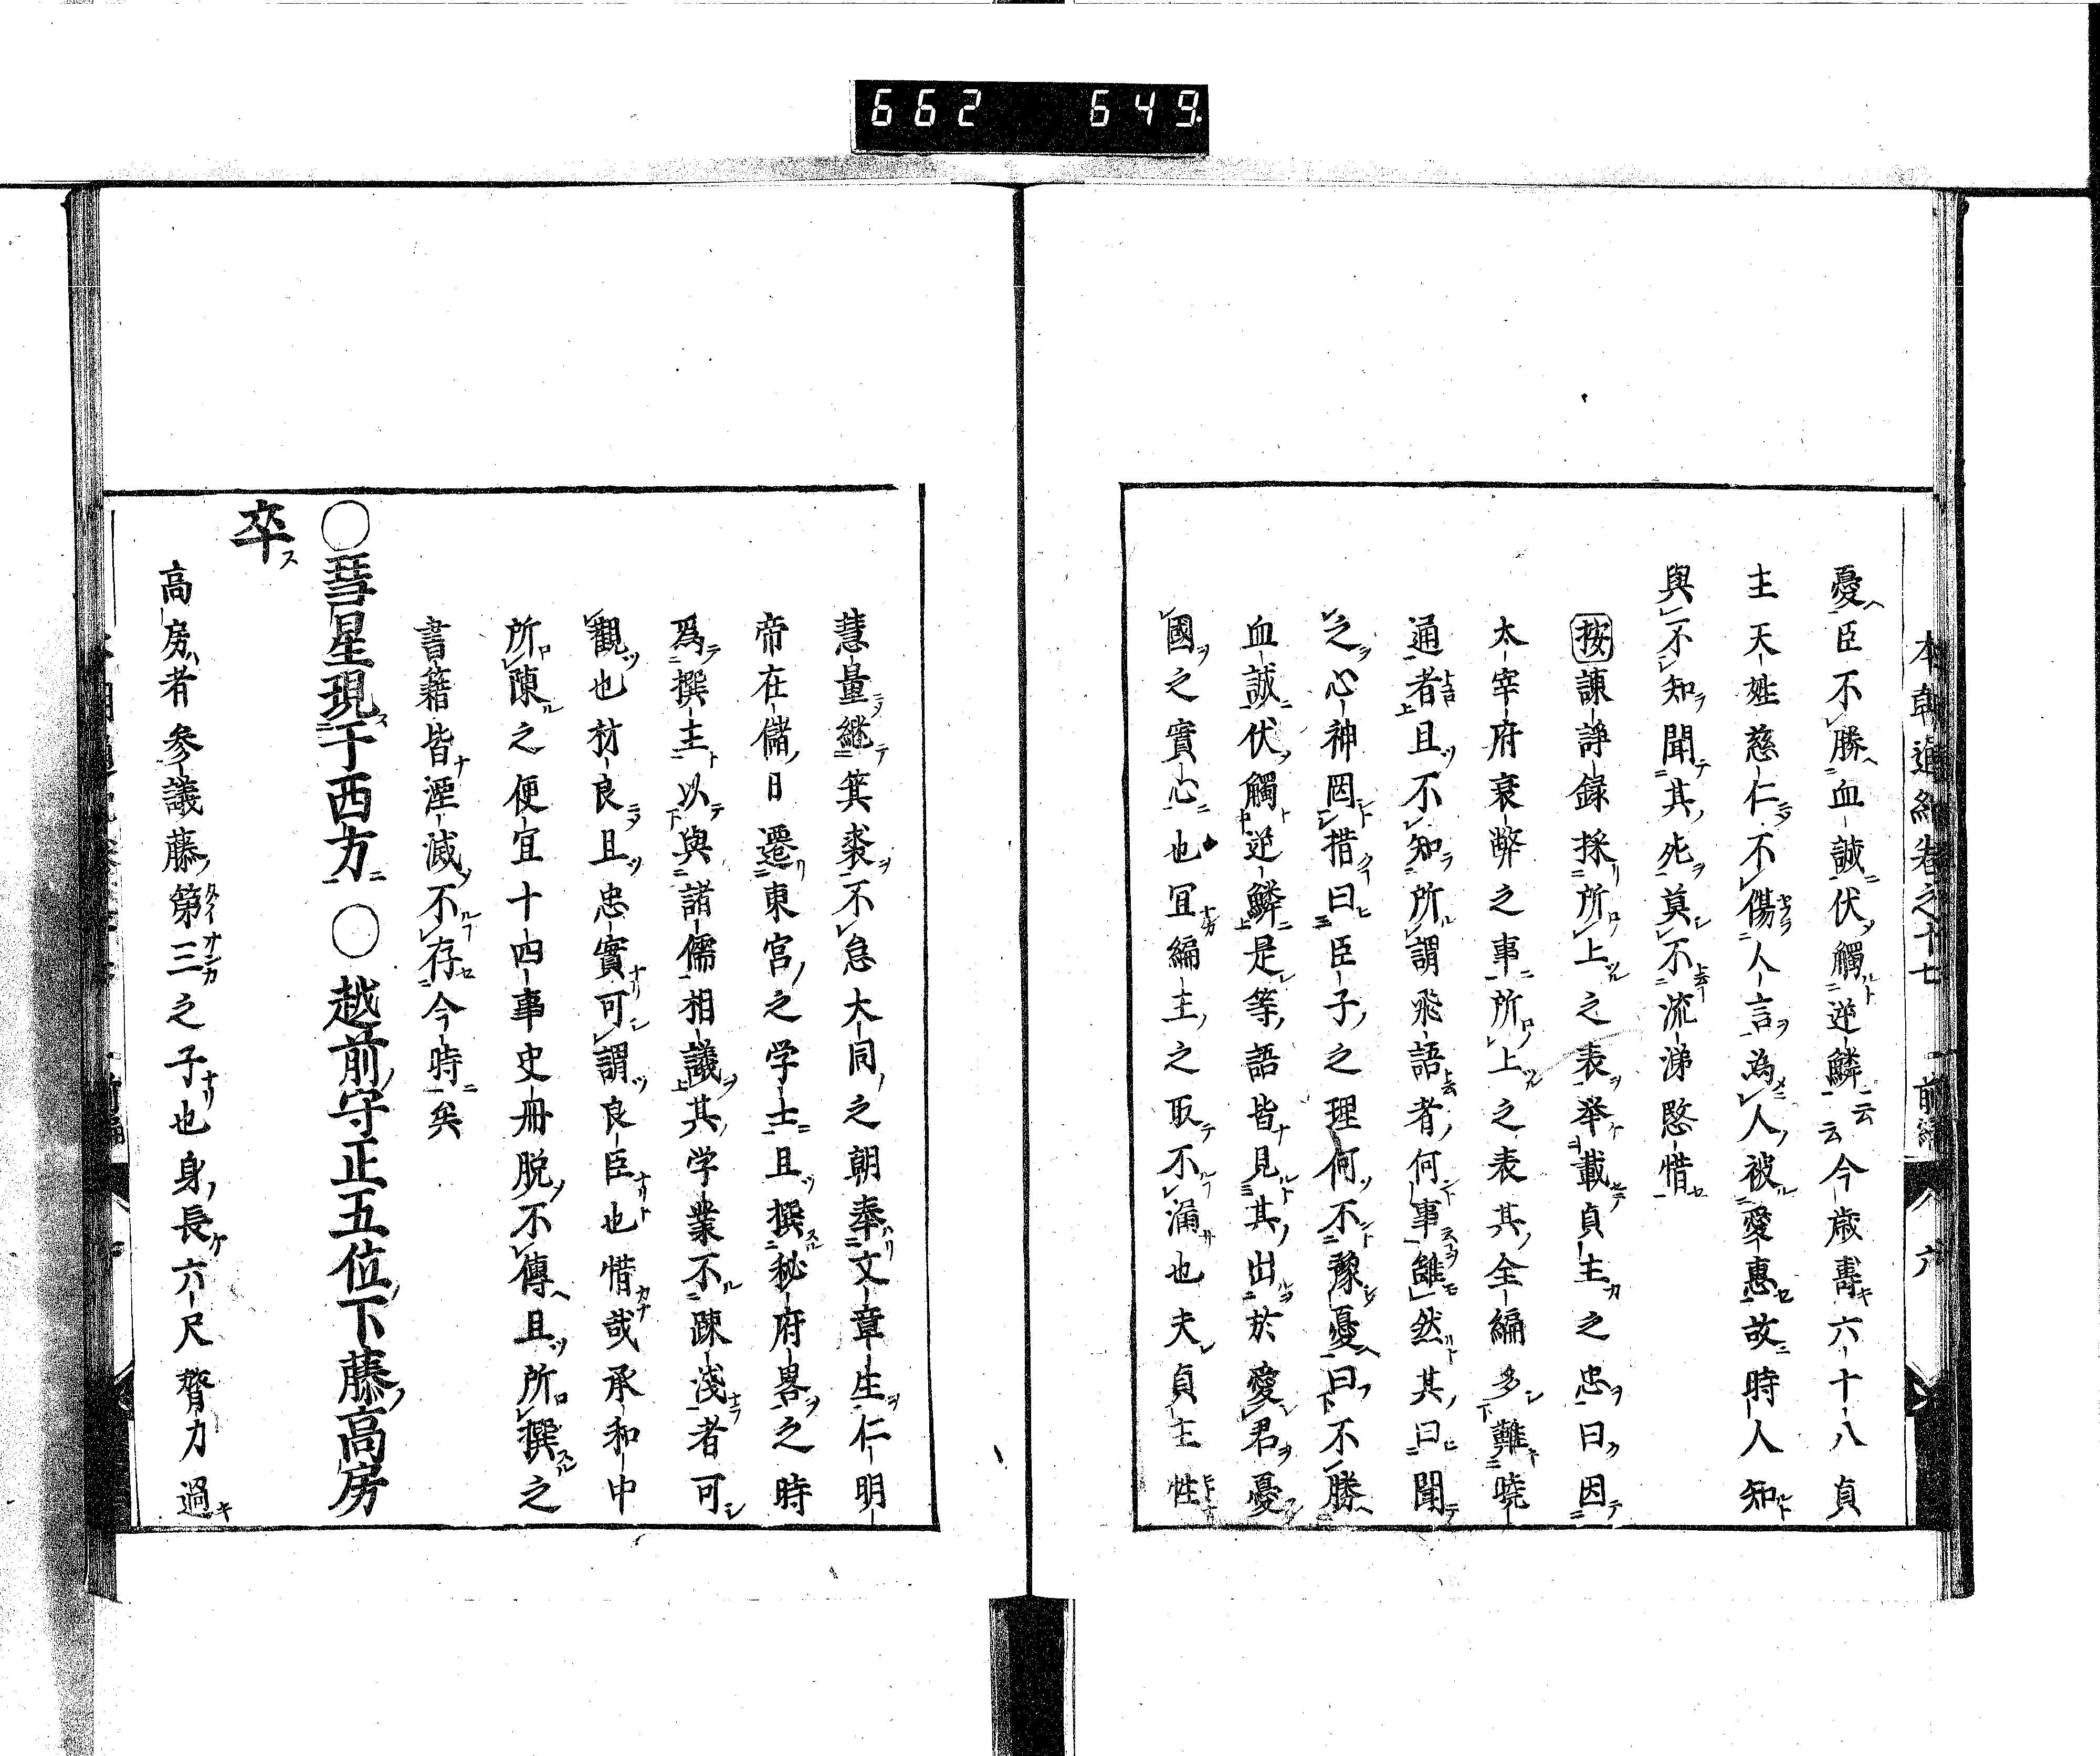 662 649
本朝通紀卷之十七 前編 八 六
憂臣不勝血誠伏觸逆鱗云云今歳壽六十八貞
主天姓慈仁不傷人言為人被愛惠故時人知
與不知聞其死莫不流涕愍惜
按諫諍録採所上之表舉載貞主之忠曰因
太宰府衰弊之事所上之表其全編多難曉
通者且不知所謂飛語者何事雖然其曰聞
之心神罔措曰臣子之理何不豫憂曰不勝
血誠伏觸逆鱗是等語皆見其出於愛君憂
國之實心也冝編主之取不漏也夫貞主性
慧量継箕裘不怠大同之朝奉文章生仁明
帝在儲日遷東宮之学士且撰秘府畧之時
爲撰主以與諸儒相議其学業不踈淺者可
觀也材良且忠實可謂良臣也惜哉承和中
所陳之便宜十四事史冊脱不傳且所撰之
書籍皆湮滅不存今時矣
〇彗星現于西方〇越前守正五位下藤高房
卒
高房者参議藤第三之子也身長六尺膂力過